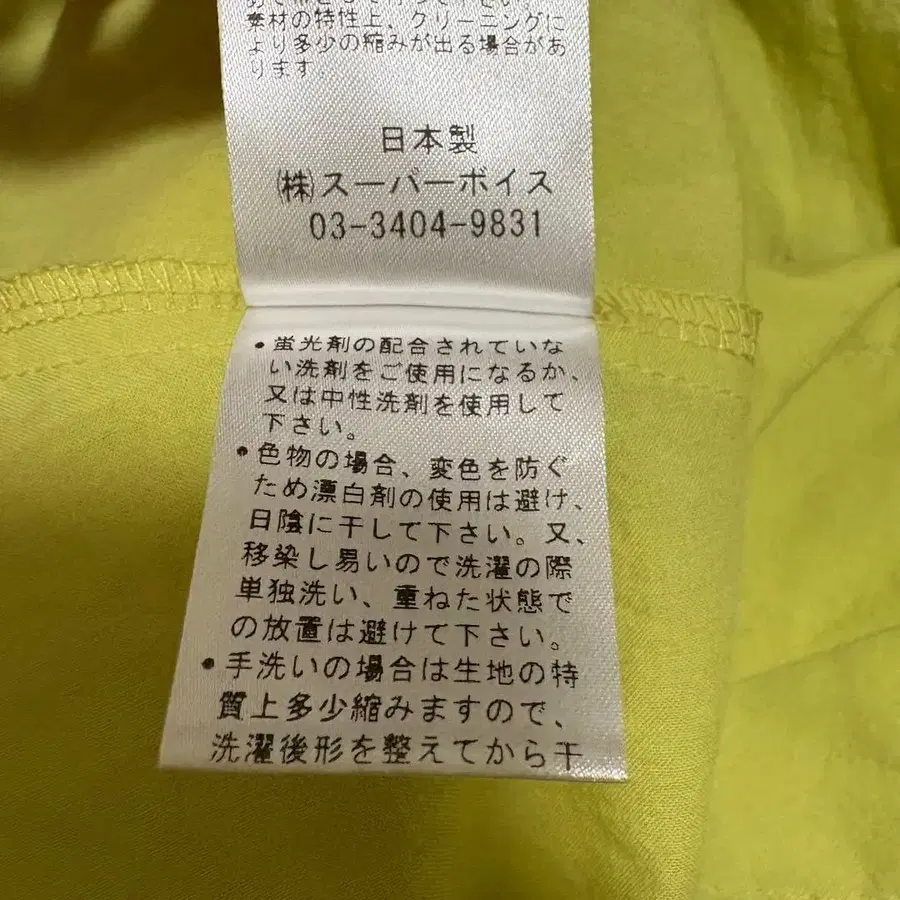 素材の特性上、クリーニングに
より多少の縮みが出る場合があ
ります。
日本製
(株)スーパーボイス
03-3404-9831
・蛍光剤の配合されていな
い洗剤をご使用になるか、
又は中性洗剤を使用して
下さい。
・色物の場合、変色を防ぐ
ため漂白剤の使用は避け、
日陰に干して下さい。又、
移染し易いので洗濯の際
単独洗い、重ねた状態で
の放置は避けて下さい。
・手洗いの場合は生地の特
質上多少縮みますので、
洗濯後形を整えてから干